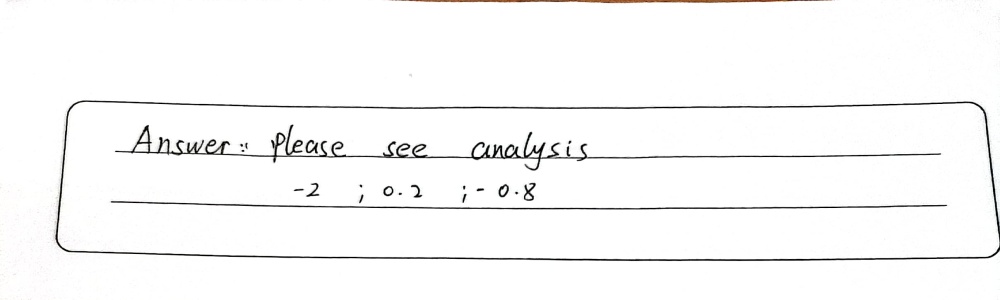 Answer: Please see analysis
-2 ; 0.2 ; -0.8